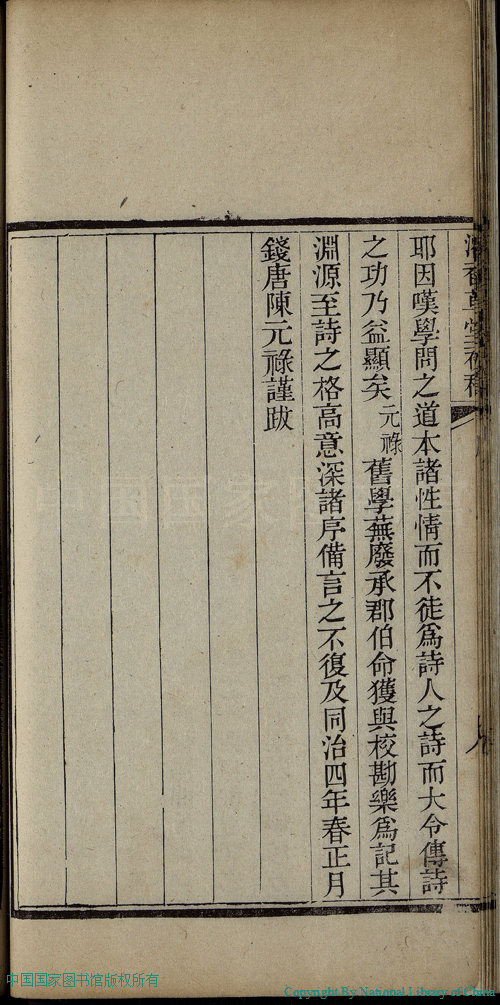 耶因嘆學問之道本諸性情而不徒爲詩人之詩而大令傳詩
之功乃益顯矣元祿舊學蕪廢承郡伯命獲與校勘樂爲記其
淵源至詩之格高意深諸序備言之不復及同治四年春正月
錢唐陳元祿謹跋
中国国家图书馆版权所有
Copyright By National Library of China